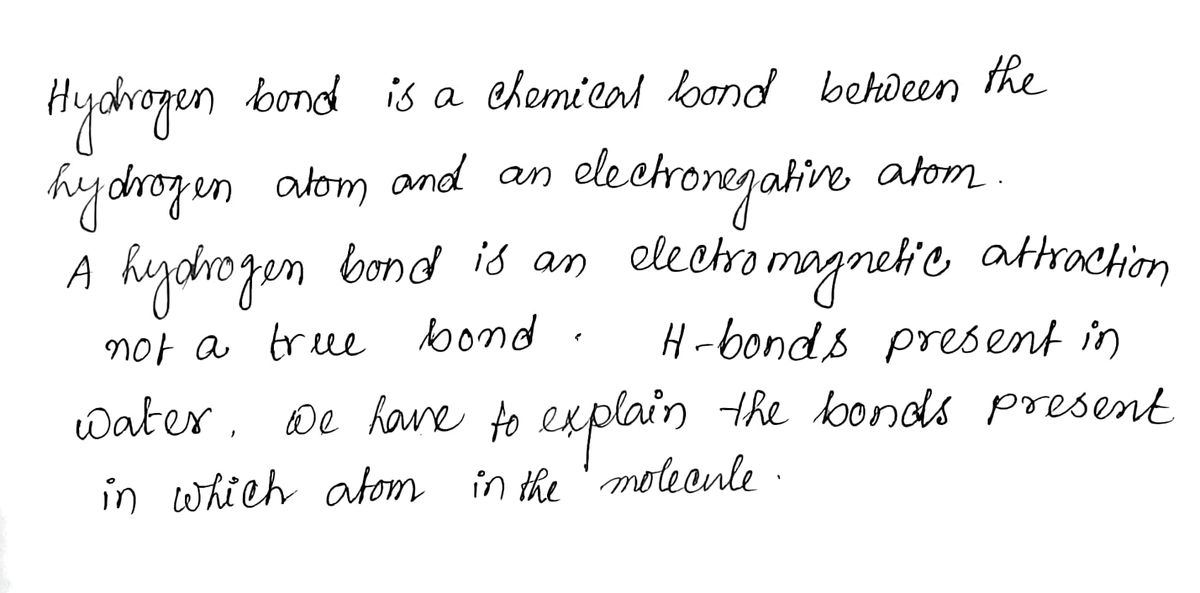 Hydrogen bond is a chemical bond between the
hydrogen atom and an electronegative atom.
A hydrogen bond is an electromagnetic attraction
not a true bond. H-bonds present in
water, we have to explain the bonds present
in which atom in the molecule.